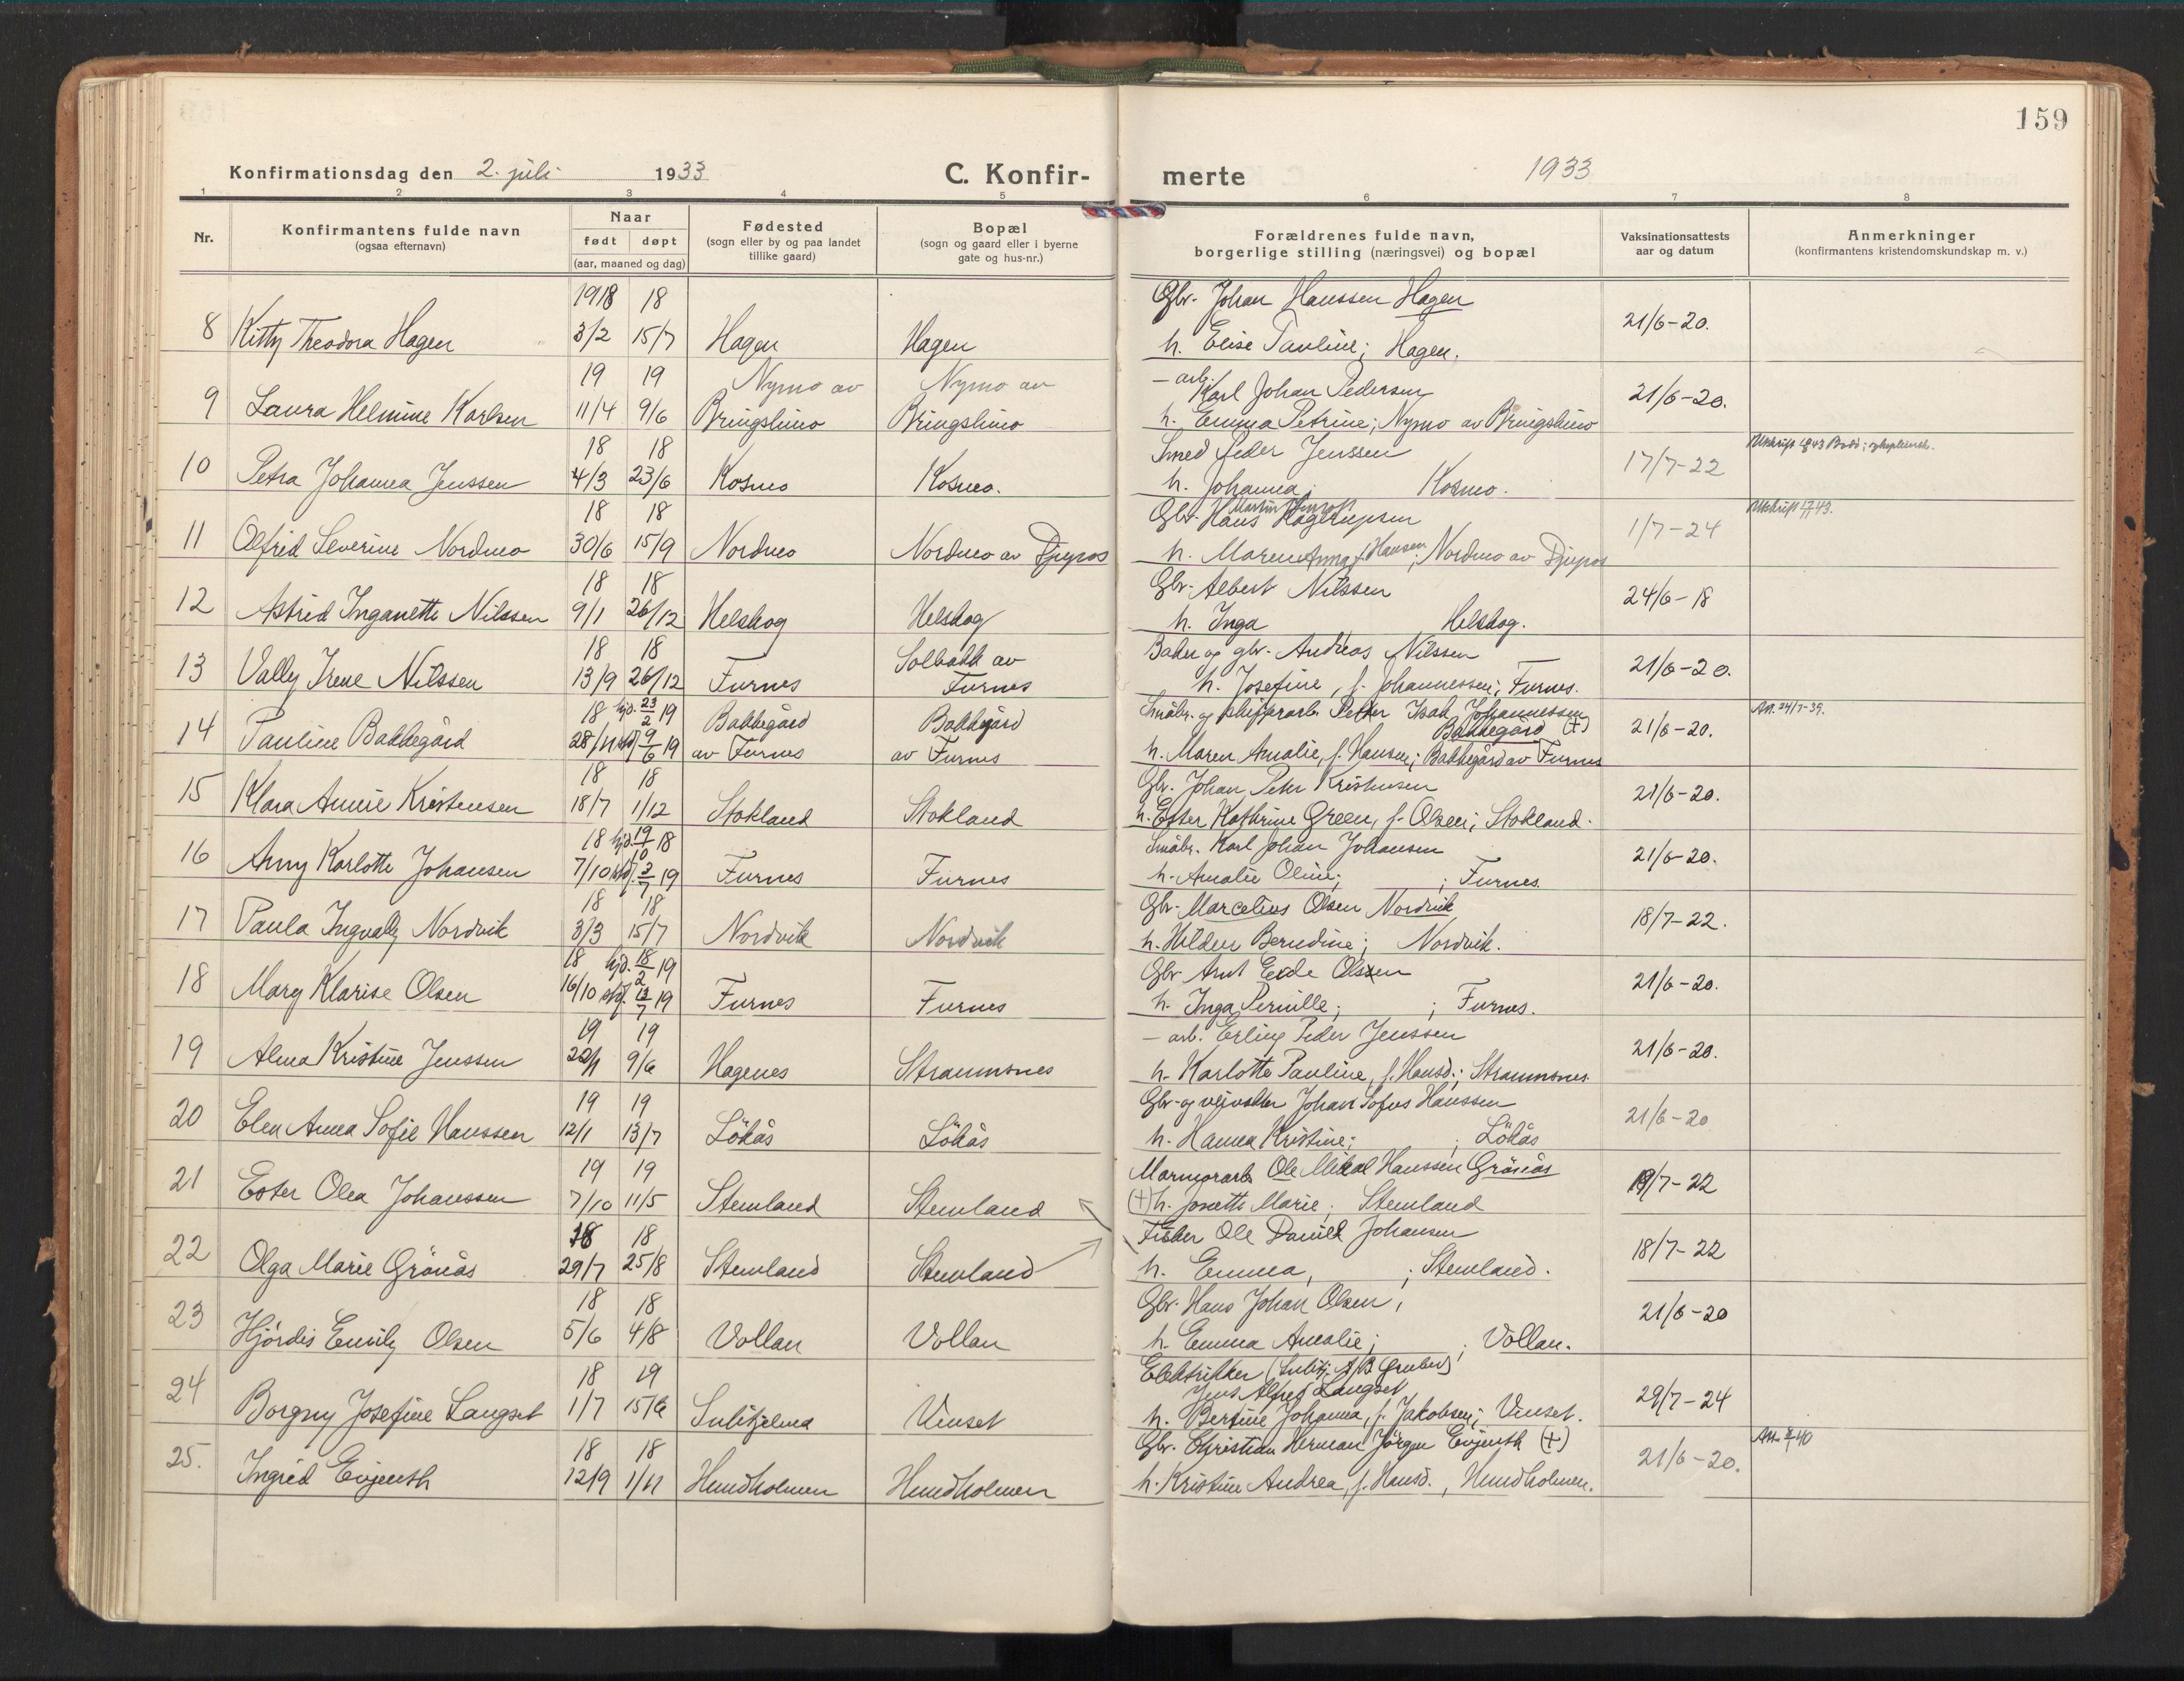 159
Konfirmationsdag den 2. juli 1933 C. Konfir- merte 1933
1 2 3 4 5 6 7 8
Nr. Konfirmantens fulde navn (ogsaa efternavn) Naar født døpt (aar, maaned og dag) Fødested (sogn eller by og paa landet tillike gaard) Bopæl (sogn og gaard eller i byerne gate og hus-nr.) Forældrenes fulde navn, borgerlige stilling (næringsvei) og bopæl Vaksinationsattests aar og datum Anmerkninger (konfirmantens kristendomskundskap m. v.)
1918 18 Gbr. Johan Hanssen Hagen
8 Kitty Theodora Hagen 3/2 15/7 Hagen Hagen h. Elise Pauline; Hagen. 21/6-20.
19 19 Nymo av Nymo av - arb. Karl Johan Pedersen
9 Laura Helmine Karlsen 11/4 9/6 Bringslimo Bringslimo h. Emma Petrine; Nymo av Bringslimo 21/6-20.
18 18 Smed Peder Jenssen
10 Petra Johanna Jenssen 4/3 23/6 Kosmo Kosmo. h. Johanna; Kosmo. 17/7-22
18 18 Gbr. Hans Hagerupsen
11 Olfrid Severine Nordmo 30/6 15/9 Nordmo Nordmo av Djupos h. Maren Anna f. Hansen; Nordmo av Djupos 1/7-24
18 18 Gbr. Albert Nilssen
12 Astrid Inganette Nilssen 9/1 26/12 Helskog Helskog h. Inga Helskog. 24/6-18
18 18 Solbakk av Baker og gbr. Andreas Nilssen
13 Vally Irene Nilssen 13/9 26/12 Furnes Furnes h. Josefine, f. Johannessen; Furnes. 21/6-20.
18 hjd. 23/2 19 Bakkegård Bakkegård Småbr. og skiferarb. Petter Isak Johannessen Bakkegård (+) Att. 24/7-39.
14 Pauline Bakkegård 28/11 9/6 19 av Furnes av Furnes h. Maren Amalie, f. Hansen; Bakkegård av Furnes 21/6-20.
18 18 Gbr. Johan Peter Kristensen
15 Klara Annie Kristensen 18/7 1/12 Stokland Stokland h. Ester Kathrine Green, f. Olsen; Stokland. 21/6-20.
18 hjd. 19/10 18 Småbr. Karl Johan Johansen
16 Anny Karlotte Johansen 7/10 3/7 19 Furnes Furnes h. Amalie Oline; ; Furnes. 21/6-20.
18 18 Gbr. Marcelius Olsen Nordvik
17 Paula Ingvally Nordvik 3/3 15/7 Nordvik Nordvik h. Hilden Berndine; Nordvik. 18/7-22.
18 hjd. 18/2 19 Gbr. Arnt Olsen
18 Mary Klarise Olsen 16/10 13/7 19 Furnes Furnes h. Inga Pernille; ; Furnes. 21/6-20.
19 19 - arb. Erling Peder Jenssen
19 Alma Kristine Jenssen 22/1 9/6 Hagenes Straumsnes h. Karlotte Pauline, f. Hansd.; Straumsnes. 21/6-20.
19 19 Gbr. og veivokter Johan Sofus Hanssen
20 Elen Anna Sofie Hanssen 12/1 13/7 Lökås Lökås h. Hanna Kristine; ; Lökås 21/6-20
19 19 Marmorarb. Ole Mikal Hanssen Grönås
21 Ester Olea Johanssen 7/10 11/5 Stemland Stemland (+) h. Jonette Marie; Stemland 19/7-22
18 18 Fisker Ole Daniel Johansen
22 Olga Marie Grönås 29/7 25/8 Stemland Stemland h. Emma, ; Stemland. 18/7-22
18 18 Gbr. Hans Johan Olsen,
23 Hjördis Emily Olsen 5/6 4/8 Vollan Vollan h. Emma Amalie; ; Vollan. 21/6-20
18 19 Elektriker (Sulitj. A/B Gruber) Jens Alfred Langset
24 Borgny Josefine Langset 1/7 15/6 Sulitjelma Vinset h. Bertine Johanna, f. Jakobsen; Vinset. 29/7-24
18 18 Gbr. Christian Herman Jörgen Evjenth (+)
25. Ingrid Evjenth 12/9 1/11 Hundholmen Hundholmen h. Kristine Andrea, f. Hansd., Hundholmen. 21/6-20.